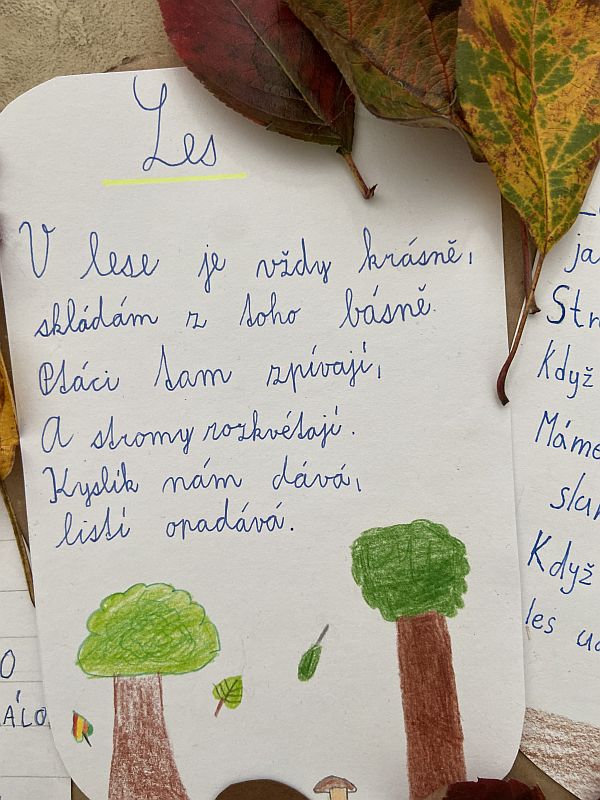 Les
V lese je vždy krásně,
skládám z toho básně.
Ptáci tam zpívají,
A stromy rozkvétají.
Kyslík nám dává,
listí opadává.
Když
Máme
Když
les